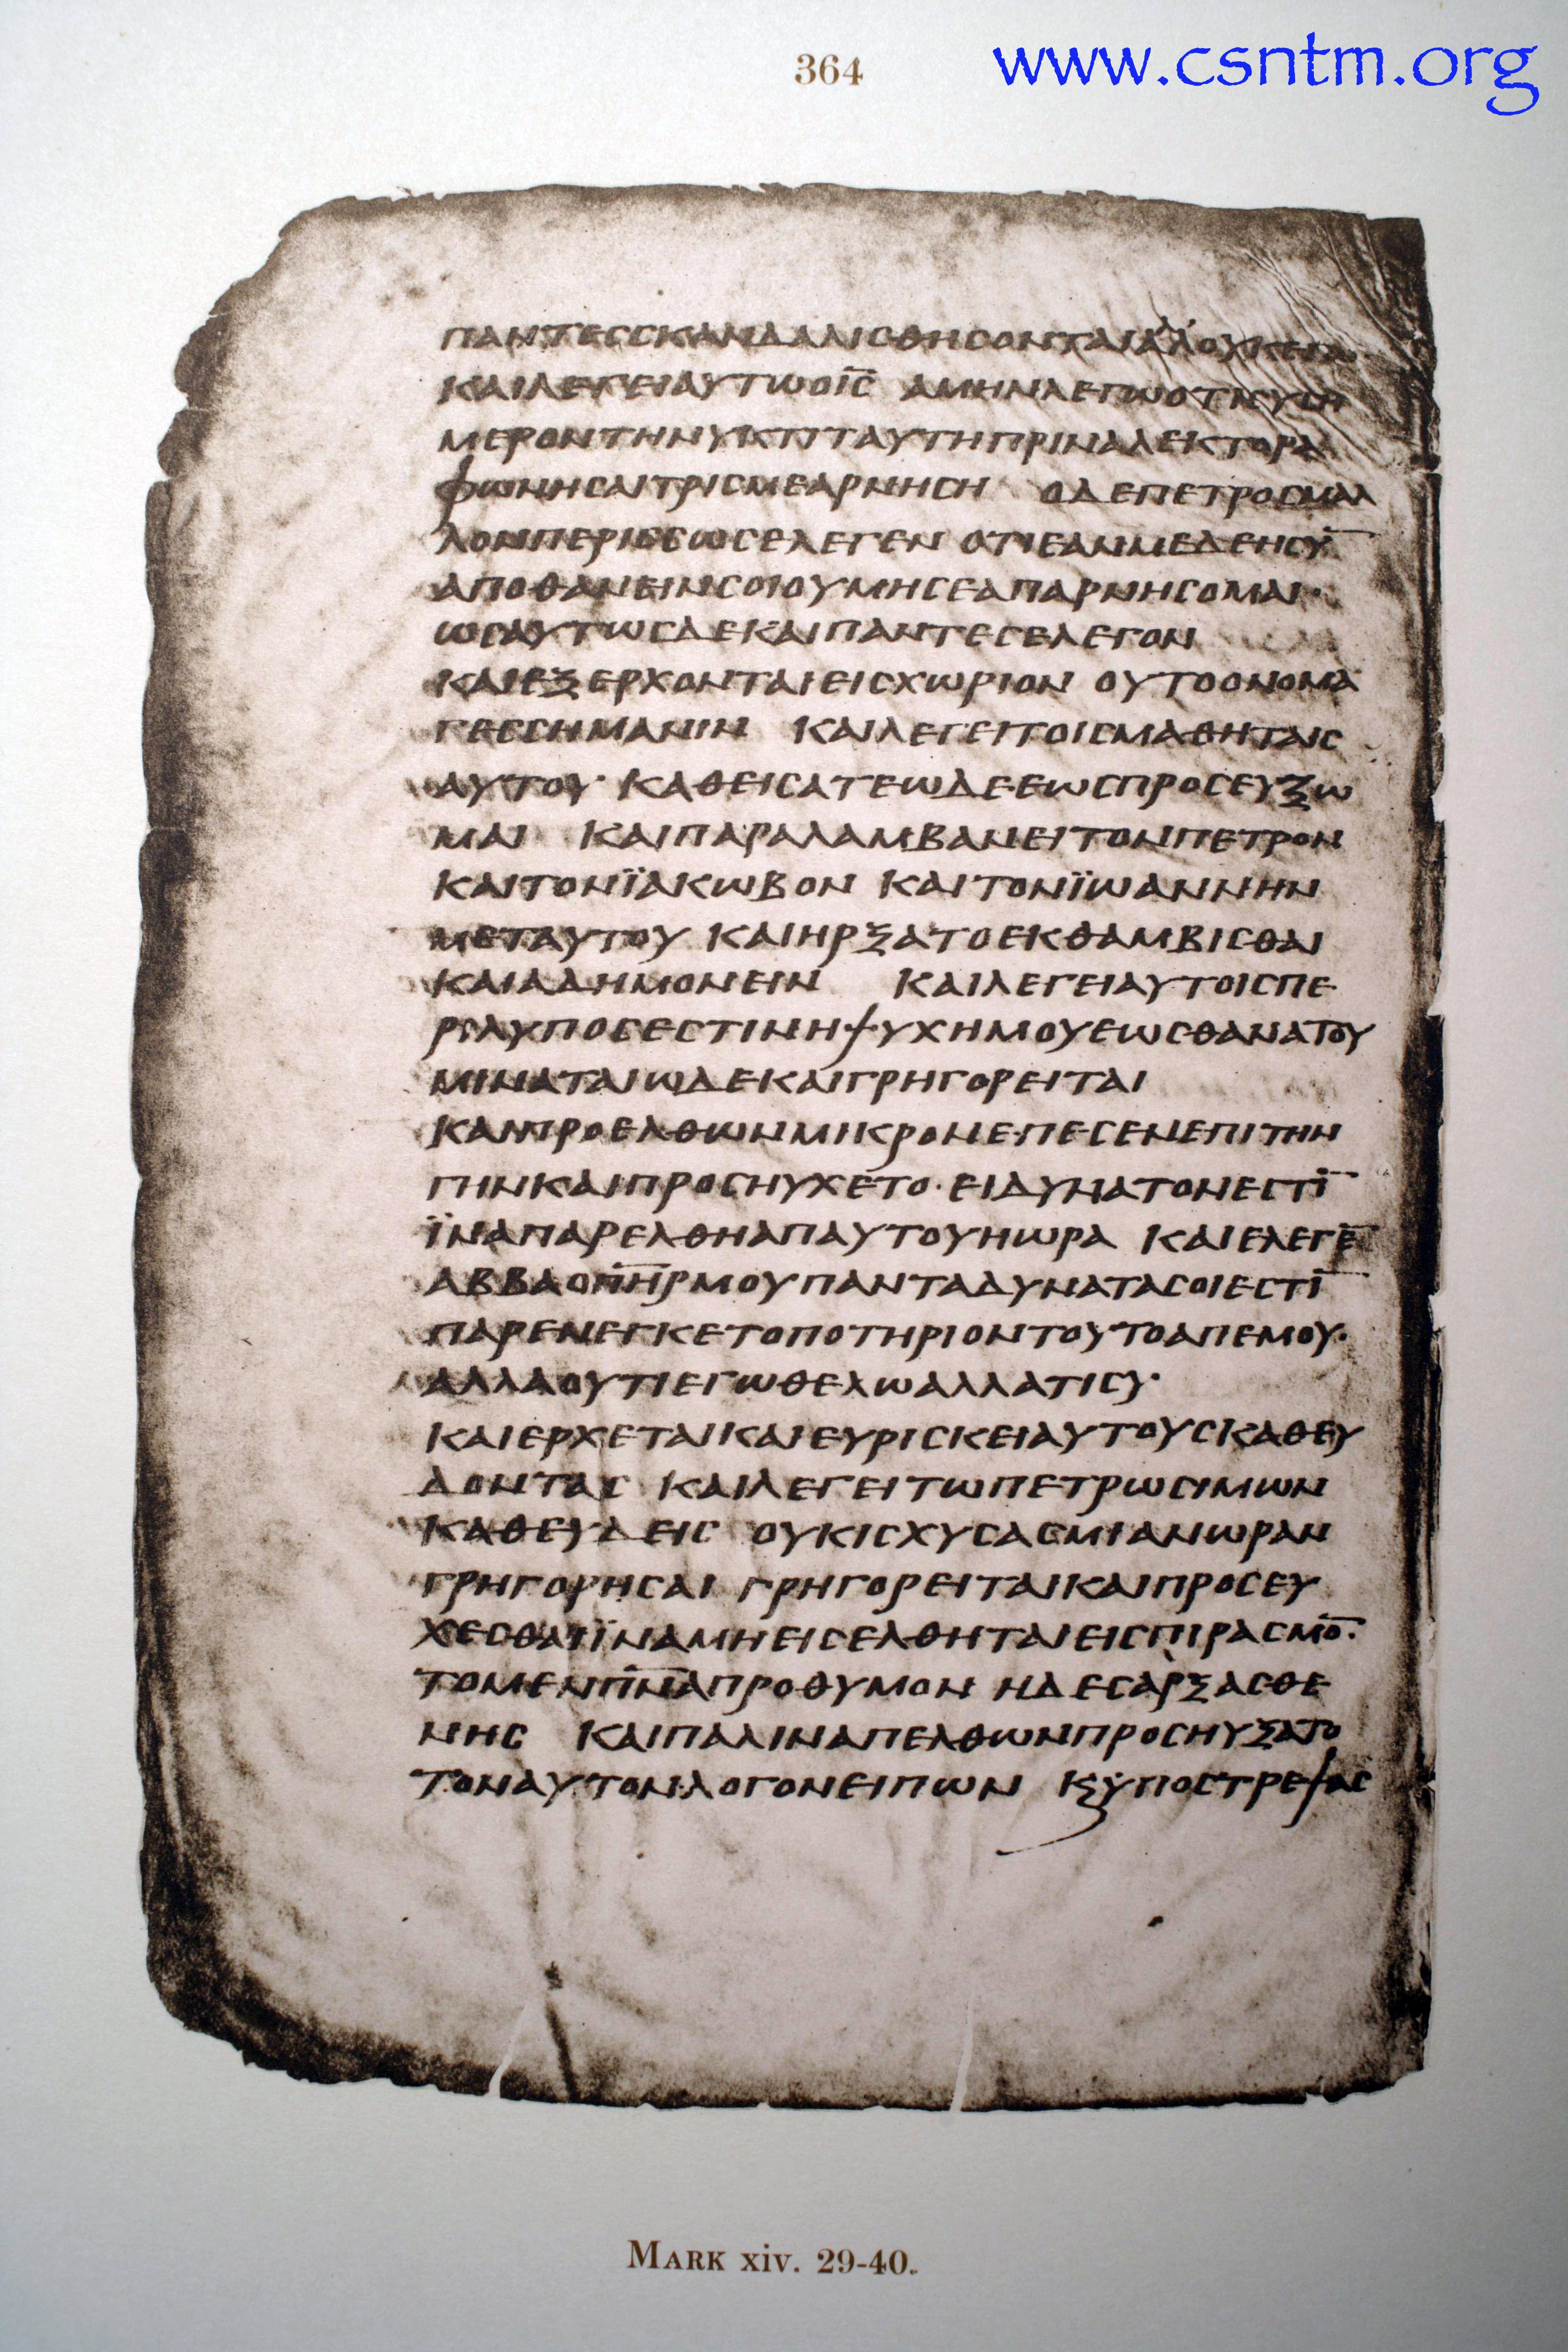 364
www.csntm.org
ΠΑΝΤΕССΚΑΝΔΑΛΙСΘΗСΟΝΤΑΙΑΛΛΟΥΚΕΓΩ
ΚΑΙΛΕΓΕΙΑΥΤΩΟΙ̅С̅ ΑΜΗΝΛΕΓΩΟΤΙСΥСΗ
ΜΕΡΟΝΤΗΝΥΚΤΙΤΑΥΤΗΠΡΙΝΑΛΕΚΤΟΡΑ
ΦΩΝΗСΑΙΤΡΙСΜΕΑΡΝΗСΗ ΟΔΕΠΕΤΡΟСΜΑΛ
ΛΟΝΠΕΡΙССΩСΕΛΕΓΕΝ ΟΤΙΕΑΝΜΕΔΕΗСΥ̅
ΑΠΟΘΑΝΕΙΝСΟΙΟΥΜΗСΕΑΠΑΡΝΗСΟΜΑΙ·
ΩСΑΥΤΩСΔΕΚΑΙΠΑΝΤΕСΕΛΕΓΟΝ
ΚΑΙΕΞΕΡΧΟΝΤΑΙΕΙСΧΩΡΙΟΝ ΟΥΤΟΟΝΟΜΑ
ΓΕССΗΜΑΝΙΝ ΚΑΙΛΕΓΕΙΤΟΙСΜΑΘΗΤΑΙС
ΑΥΤΟΥ· ΚΑΘΕΙСΑΤΕΩΔΕΕΩСΠΡΟСΕΥΞΩ
ΜΑΙ ΚΑΙΠΑΡΑΛΑΜΒΑΝΕΙΤΟΝΠΕΤΡΟΝ
ΚΑΙΤΟΝΪΑΚΩΒΟΝ ΚΑΙΤΟΝΪΩΑΝΝΗΝ
ΜΕΤΑΥΤΟΥ ΚΑΙΗΡΞΑΤΟΕΚΘΑΜΒΙСΘΑΙ
ΚΑΙΑΔΗΜΟΝΕΙΝ ΚΑΙΛΕΓΕΙΑΥΤΟΙСΠΕ
ΡΙΛΥΠΟСΕСΤΙΝΗΨΥΧΗΜΟΥΕΩСΘΑΝΑΤΟΥ
ΜΙΝΑΤΑΙΩΔΕΚΑΙΓΡΗΓΟΡΕΙΤΑΙ
ΚΑΙΠΡΟΕΛΘΩΝΜΙΚΡΟΝΕΠΕСΕΝΕΠΙΤΗΝ
ΓΗΝΚΑΙΠΡΟСΗΥΧΕΤΟ·ΕΙΔΥΝΑΤΟΝΕСΤΙ̅
ΪΝΑΠΑΡΕΛΘΗΑΠΑΥΤΟΥΗΩΡΑ ΚΑΙΕΛΕΓΕ̅
ΑΒΒΑΟΠ̅Η̅Ρ̅ΜΟΥΠΑΝΤΑΔΥΝΑΤΑСΟΙΕСΤΙ̅
ΠΑΡΕΝΕΓΚΕΤΟΠΟΤΗΡΙΟΝΤΟΥΤΟΑΠΕΜΟΥ·
ΑΛΛΑΟΥΤΙΕΓΩΘΕΛΩΑΛΛΑΤΙСΥ·
ΚΑΙΕΡΧΕΤΑΙΚΑΙΕΥΡΙСΚΕΙΑΥΤΟΥСΚΑΘΕΥ
ΔΟΝΤΑС ΚΑΙΛΕΓΕΙΤΩΠΕΤΡΩСΙΜΩΝ
ΚΑΘΕΥΔΕΙС ΟΥΚΙСΧΥСΑСΜΙΑΝΩΡΑΝ
ΓΡΗΓΟΡΗСΑΙ ΓΡΗΓΟΡΕΙΤΑΙΚΑΙΠΡΟСΕΥ
ΧΕСΘΑΙΪΝΑΜΗΕΙСΕΛΘΗΤΑΙΕΙСΠΙΡΑСΜΟ̅·
ΤΟΜΕΝΠ̅Ν̅Α̅ΠΡΟΘΥΜΟΝ ΗΔΕСΑΡΞΑСΘΕ
ΝΗС ΚΑΙΠΑΛΙΝΑΠΕΛΘΩΝΠΡΟСΗΥΞΑΤΟ
ΤΟΝΑΥΤΟΝΛΟΓΟΝΕΙΠΩΝ ΚϚΫΠΟСΤΡΕΨΑС
MARK xiv. 29-40.